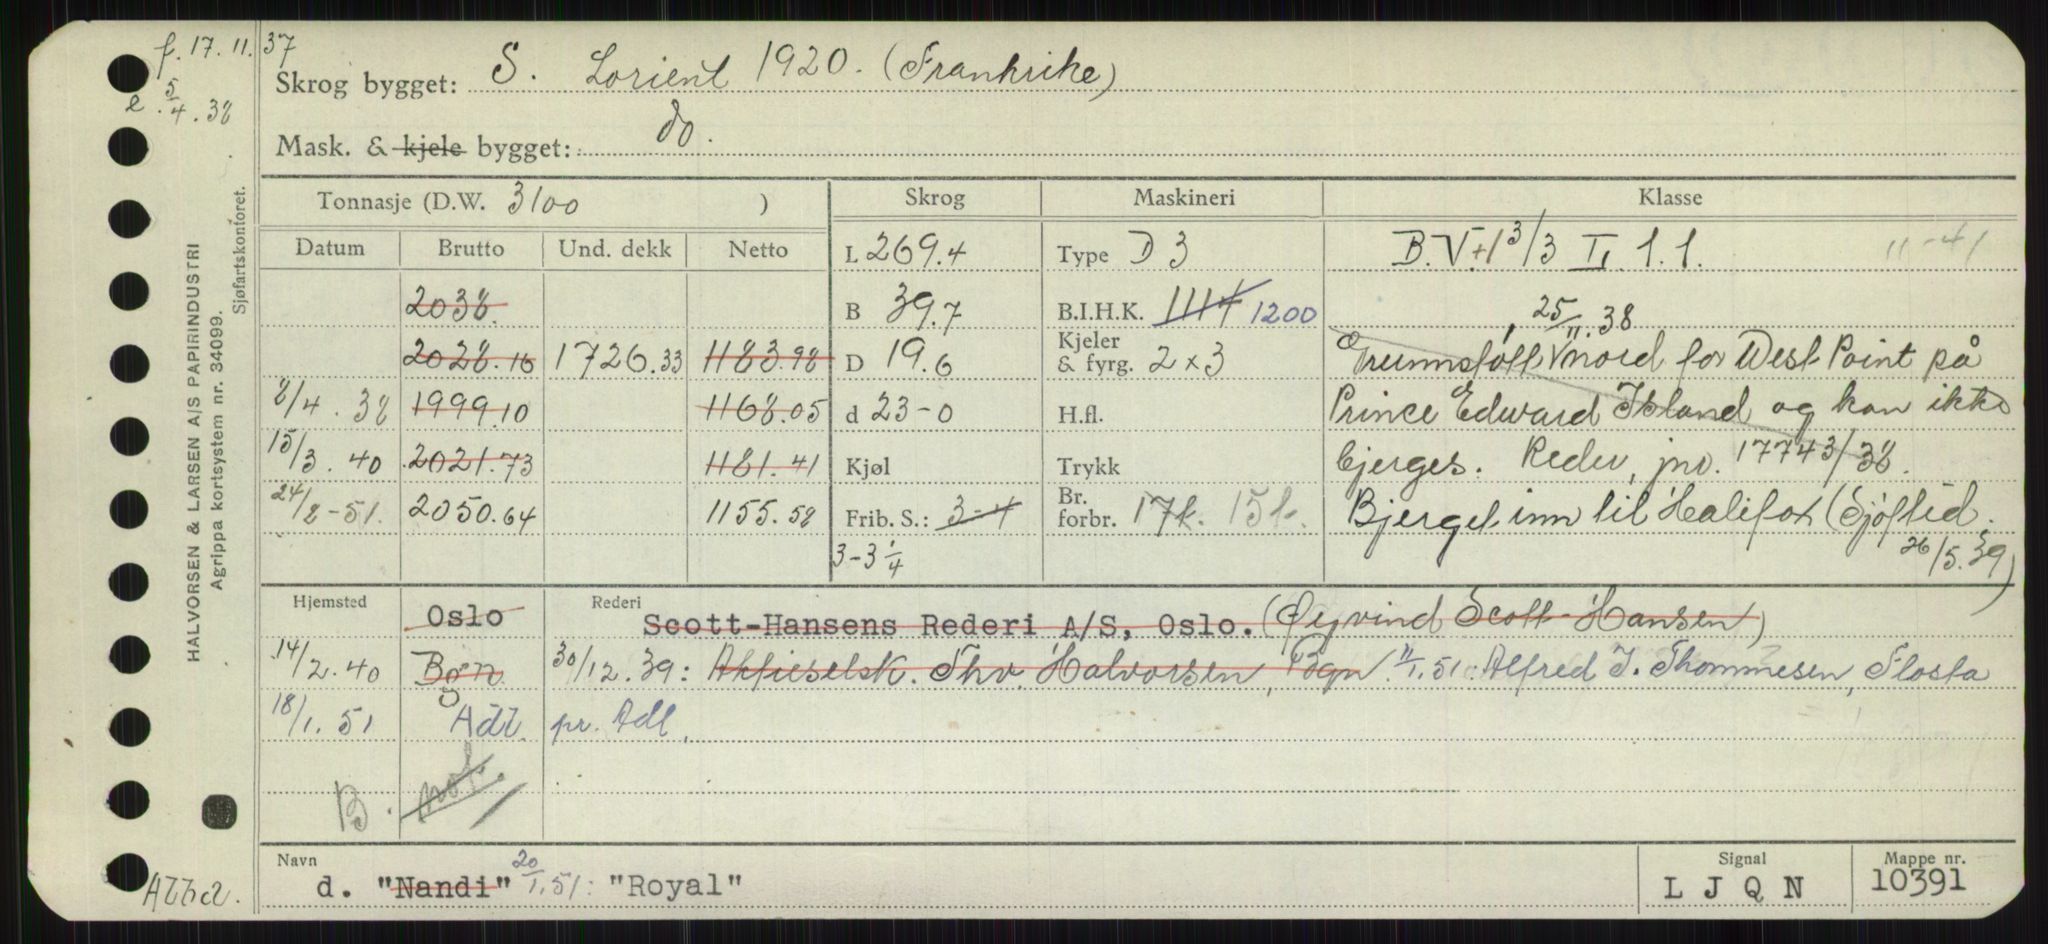 f. 17.11.37
e. 5/4.38
Skrog bygget: S. Lorient 1920. (Frankrike)
Mask. & kjele bygget: do.
HALVORSEN & LARSEN A/S PAPIRINDUSTRI
Agrippa kortsystem nr. 34099.
Sjøfartskontoret.
Tonnasje (D.W. 3100 ) Skrog Maskineri Klasse
Datum Brutto Und. dekk Netto L 269.4 Type D 3 B.V.+1 3/3 II, 1.1. 11-41
2038. B 39.7 B.I.H.K. 1114 1200 25/11.38
2028.16 1726.33 1183.98 D 19.6 Kjeler & fyrg. 2 x 3 Grunnstøtt nord for West Point på
8/4.38 1999.10 1168.05 d 23-0 H.fl. Prince Edward Island og kan ikke
15/3.40 2021.73 1181.41 Kjøl Trykk bjerges. Rederi, jnr. 17743/38.
24/8-51. 2050.64 1155.58 Frib. S.: 3-4 Br. forbr. 17t. 15t. Bjerget inn til Halifax (Sjøftid.
3-3 1/4 26/5.39)
Hjemsted Oslo Rederi Scott-Hansens Rederi A/S, Oslo. (Øyvind Scott-Hansen)
14/2.40 Bgn. 30/12.39: Aktieselsk. Thv. Halvorsen, Bgn. 11/1.51: Alfred J. Thommesen, Flosta
18/1.51 Adl. pr. Adl.
B. not.
Navn Signal Mappe nr.
d. "Nandi" 20/1.51: "Royal" L J Q N 10391